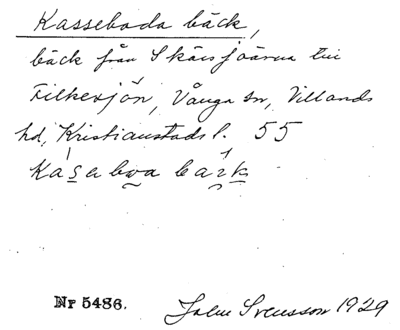 Kasseboda bäck,
bäck från Skärsjöarna till
Filkesjön, Vånga sn, Villands
hd, Kristianstads l. 55
Nr 5486. John Svensson 1929